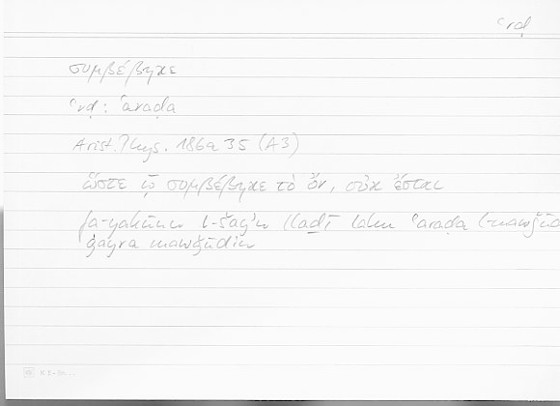 ʿrḍ
συμβέβηκε
ʿrḍ : ʿaraḍa
Arist. Phys. 186a35 (A3)
ὥστε ᾧ συμβέβηκε τὸ ὄν, οὐκ ἔσται
fa-yakūnu l-šayʾu llaḏī lahu ʿaraḍa l-mawǧūd
ġayra mawǧūdin